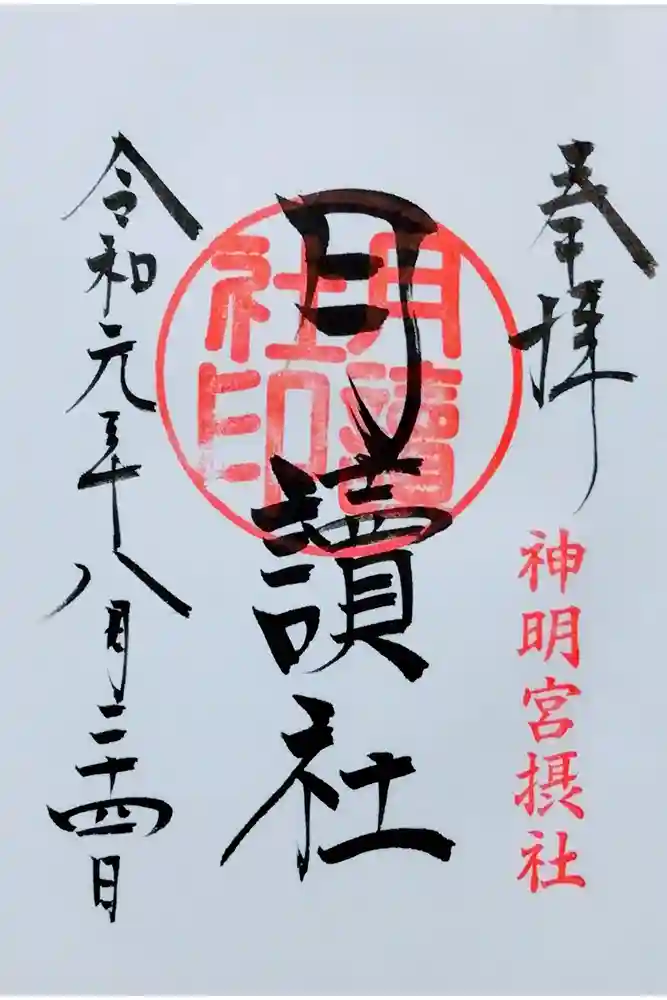 奉拝
神明宮摂社
月讀社
月讀
社印
令和元年八月二十四日